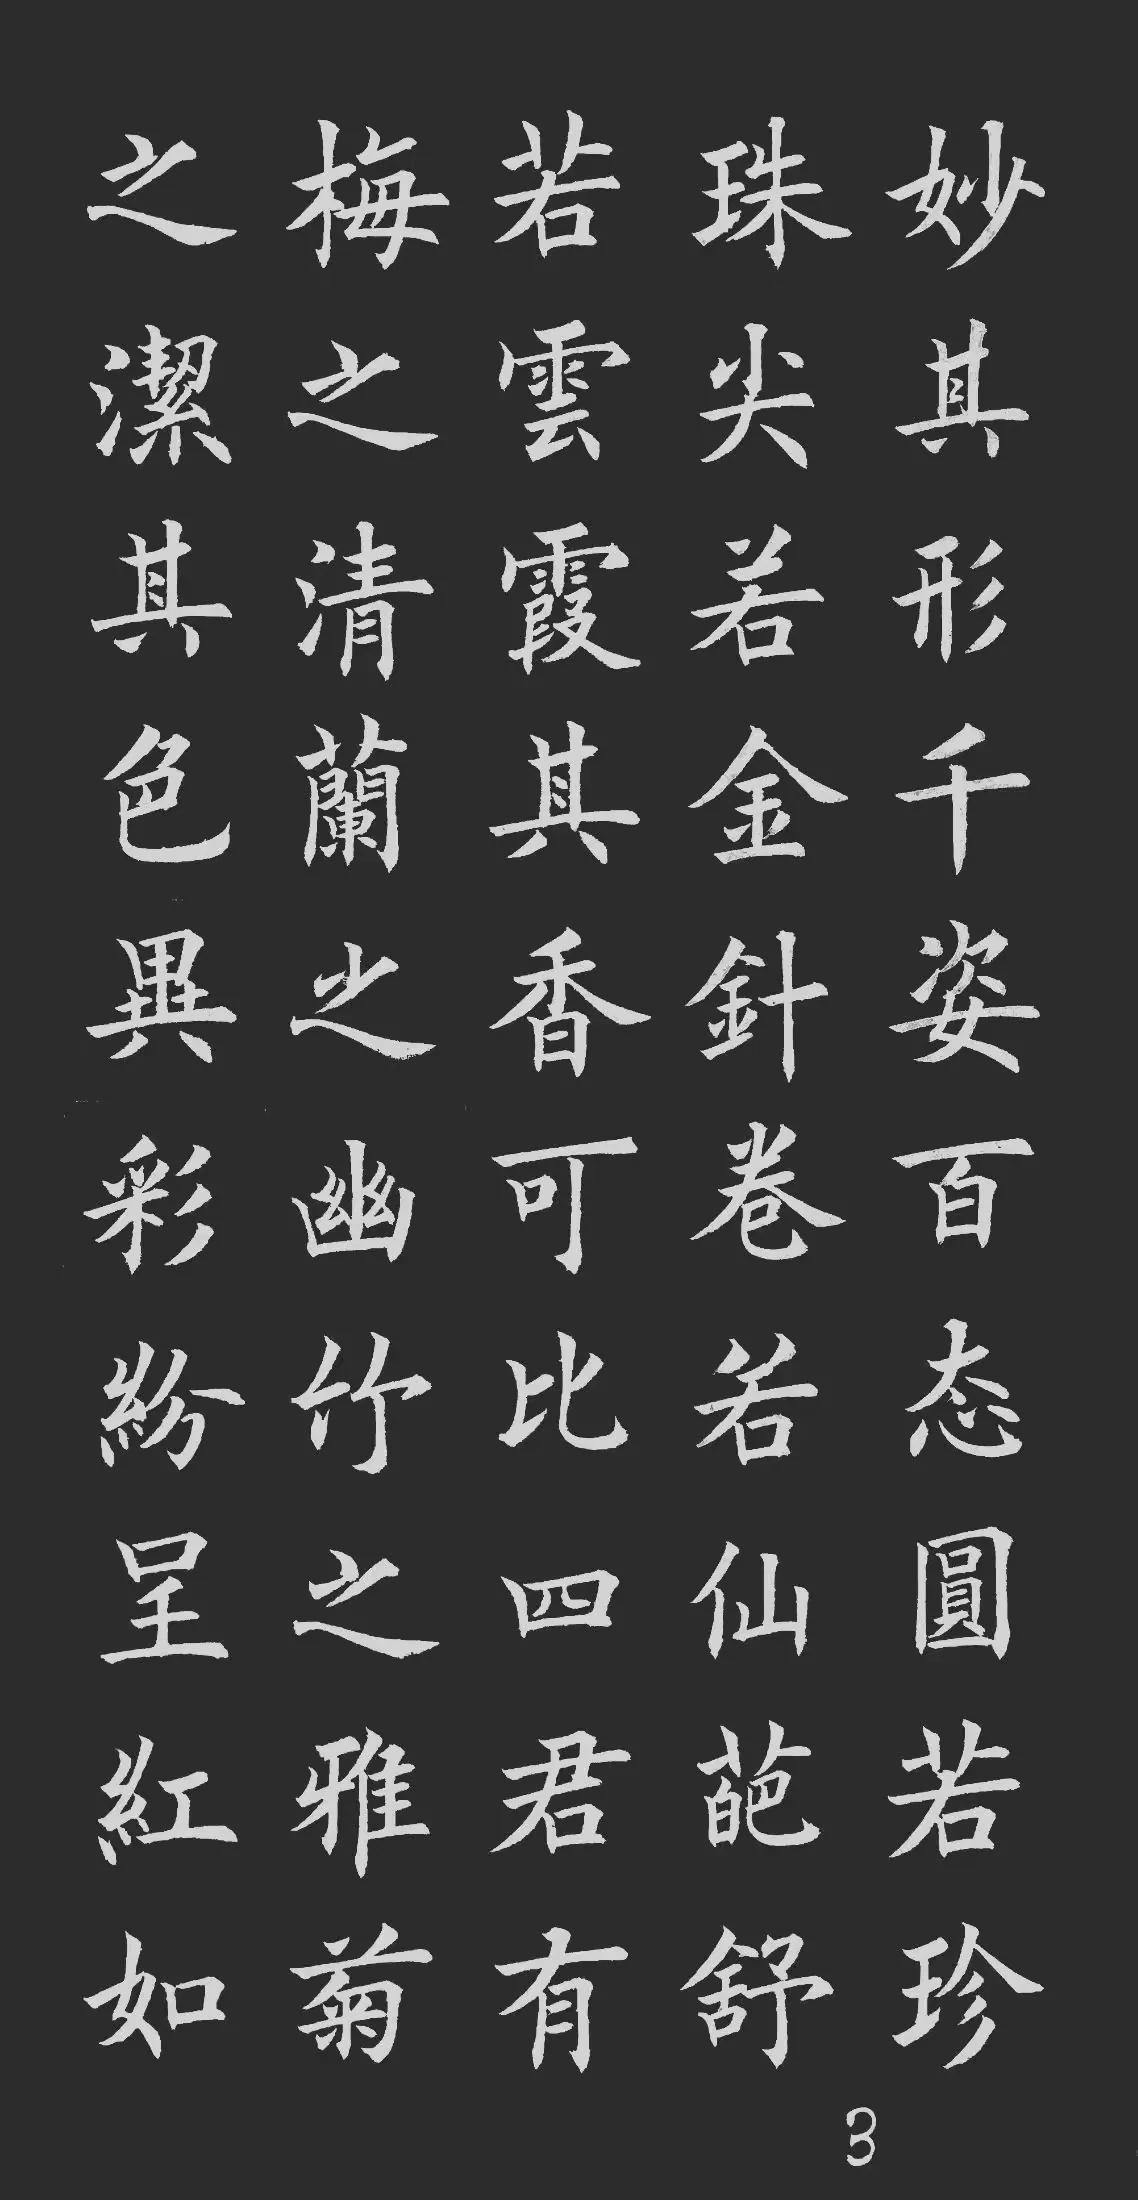 妙其形千姿百态圓若珍
珠尖若金針卷若仙葩舒
若雲霞其香可比四君有
梅之清蘭之幽竹之雅菊
之潔其色異彩紛呈紅如
3